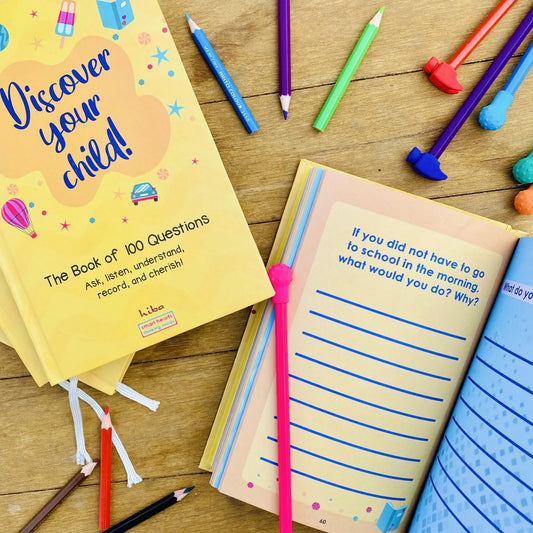 Discover
your
child!
The Book of 100 Questions
Ask, listen, understand,
record, and cherish!
hiba
smart hearts
If you did not have to go
to school in the morning,
what would you do? Why?
60
What do yo